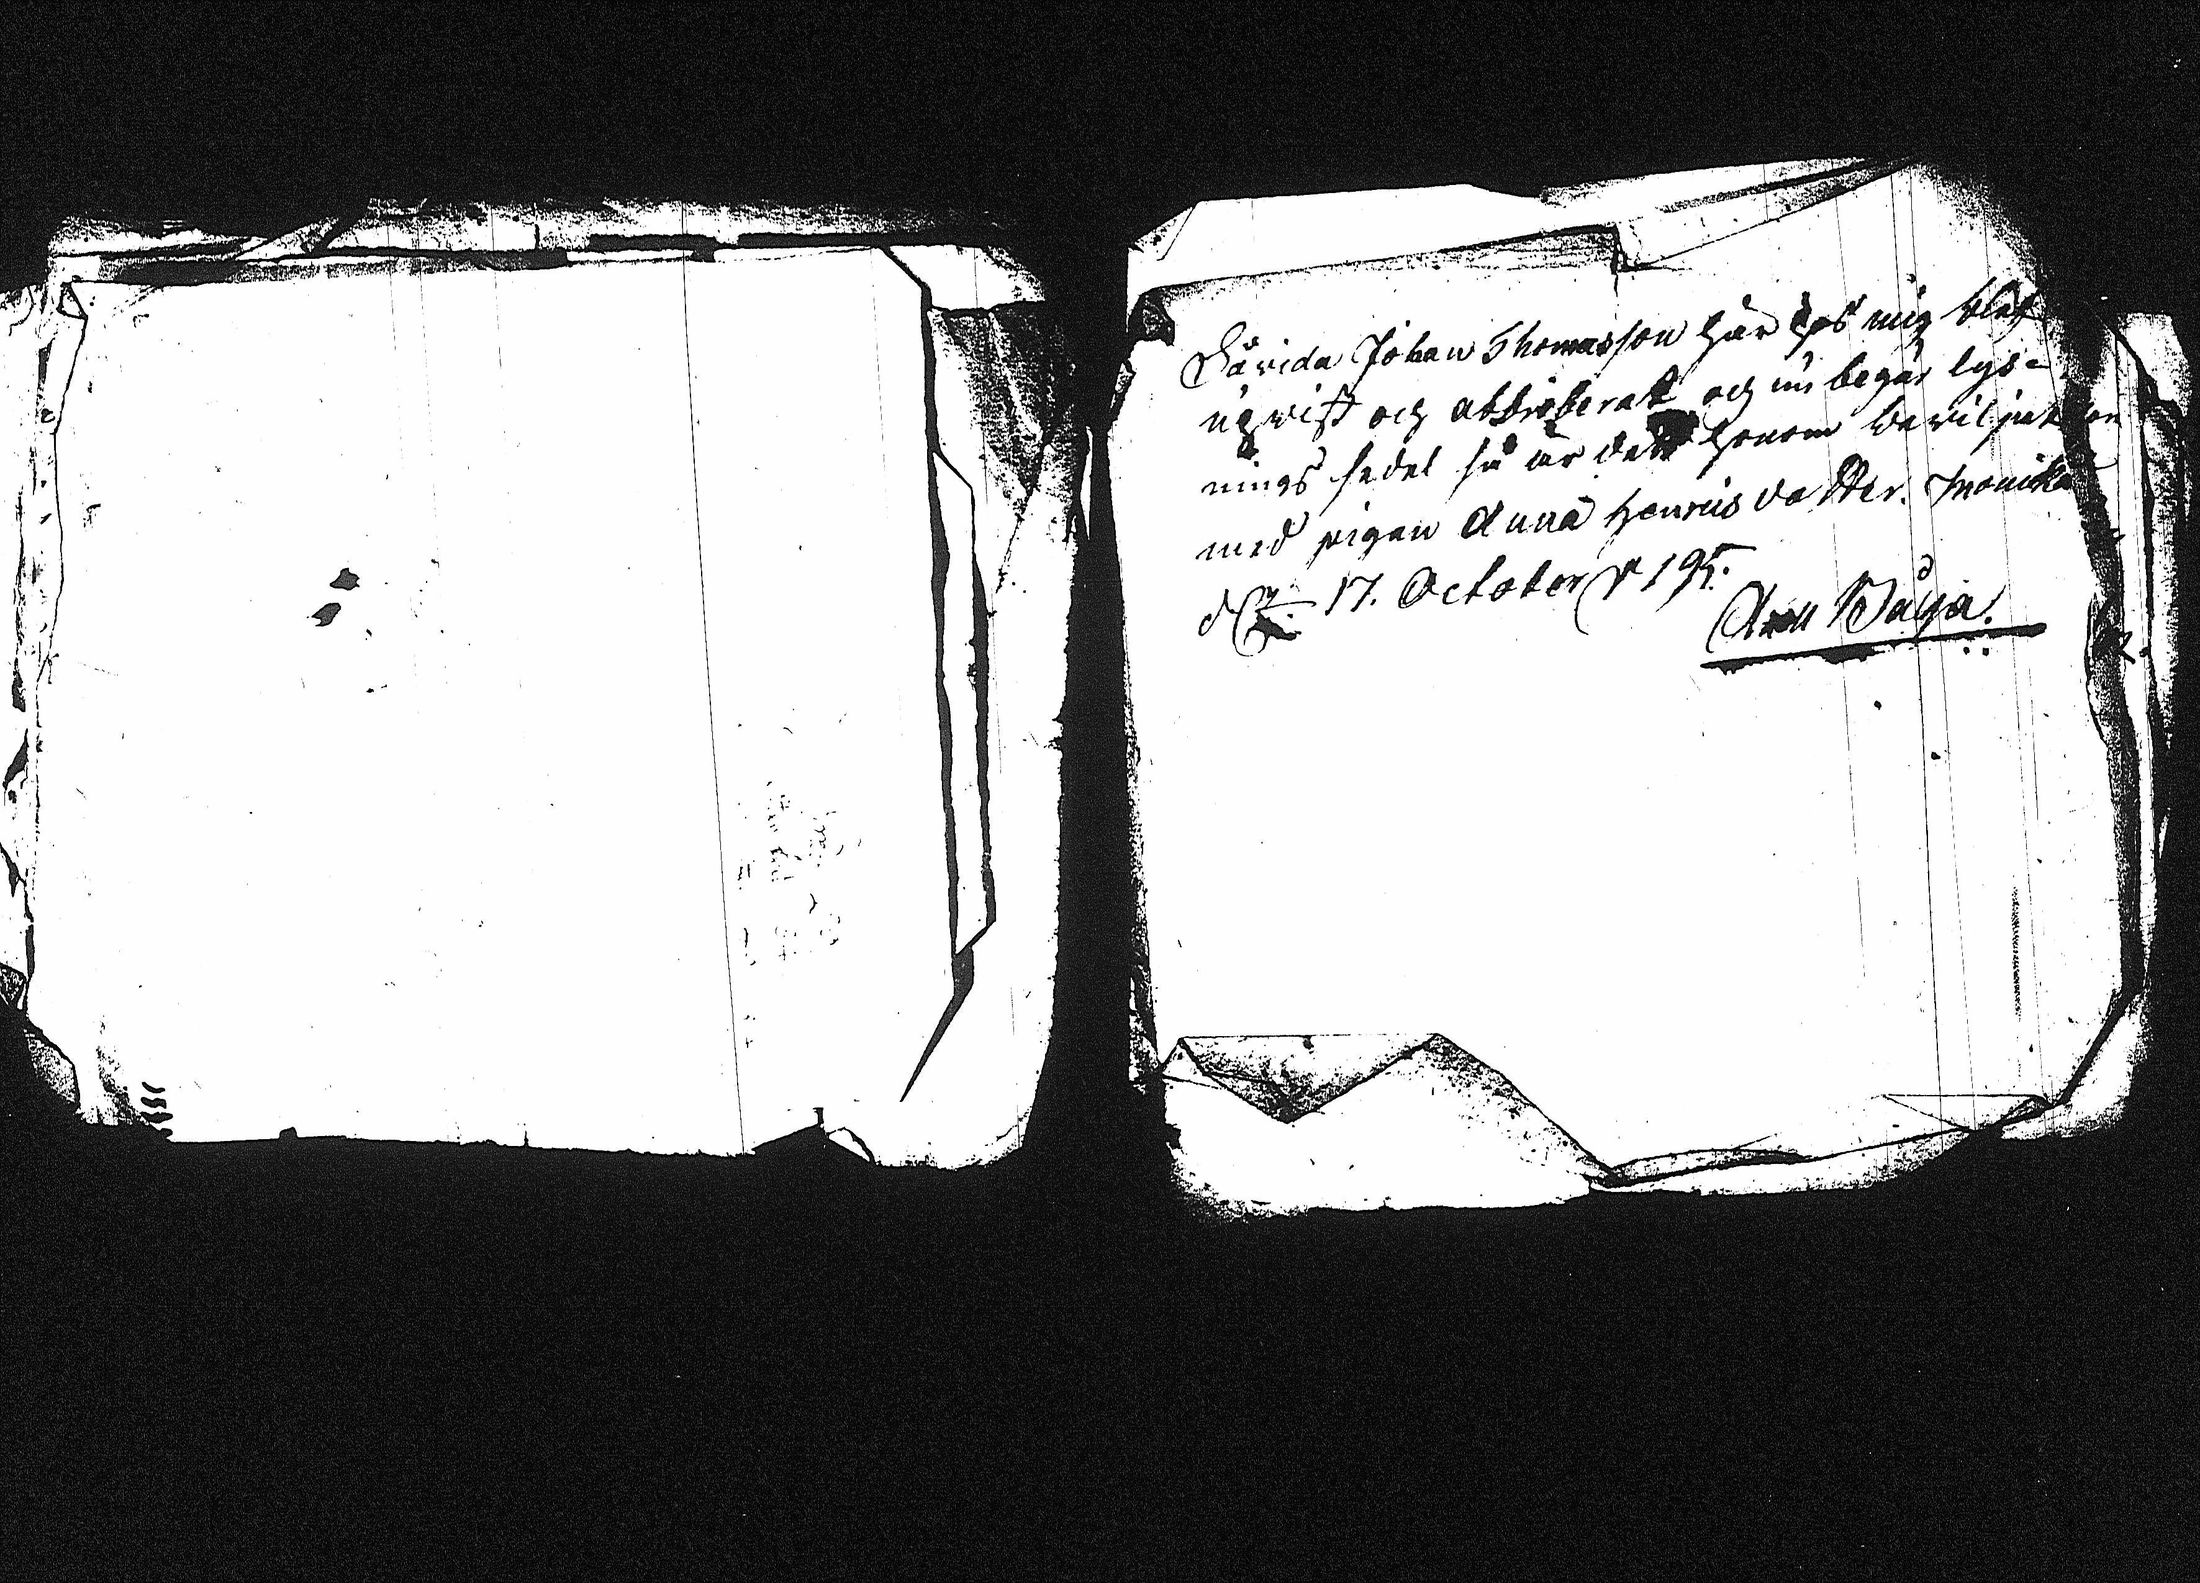 Såvida Johan Thomasson här hos mig blef
upvist och attesterat och nu begär lys-
nings sedel så är dett honom beviljat
med pigan Anna Henricsdotter.
d 17. October 1795.